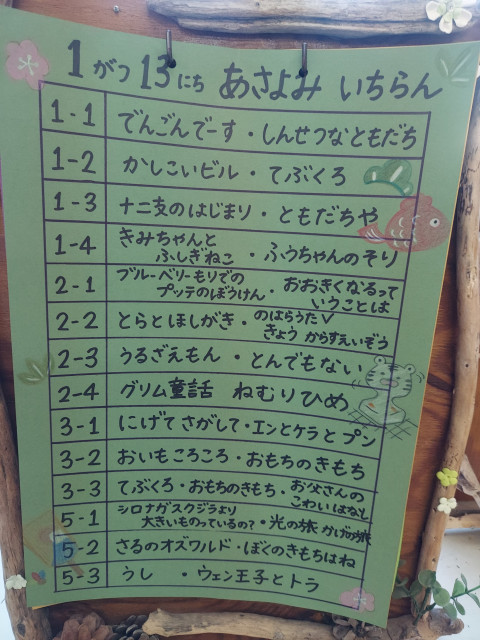 1がつ13にち あさよみ いちらん
1-1 でんごんでーす・しんせつなともだち
1-2 かしこいビル・てぶくろ
1-3 十二支のはじまり・ともだちや
1-4 きみちゃんと
ふしぎねこ・ふうちゃんのそり
2-1 ブルーベリーもりでの
プッテのぼうけん・おおきくなるって
いうことは
2-2 とらとほしがき・のはらうたV
きょう からすえいぞう
2-3 うるざえもん・とんでもない
2-4 グリム童話 ねむりひめ
3-1 にげてさがして・エンとケラとプン
3-2 おいもころころ・おもちのきもち
3-3 てぶくろ・おもちのきもち・お父さんの
こわいはなし
5-1 シロナガスクジラより
大きいものっているの?・光の旅 かげの旅
5-2 さるのオズワルド・ぼくのきもちはね
5-3 うし ・ウェン王子とトラ